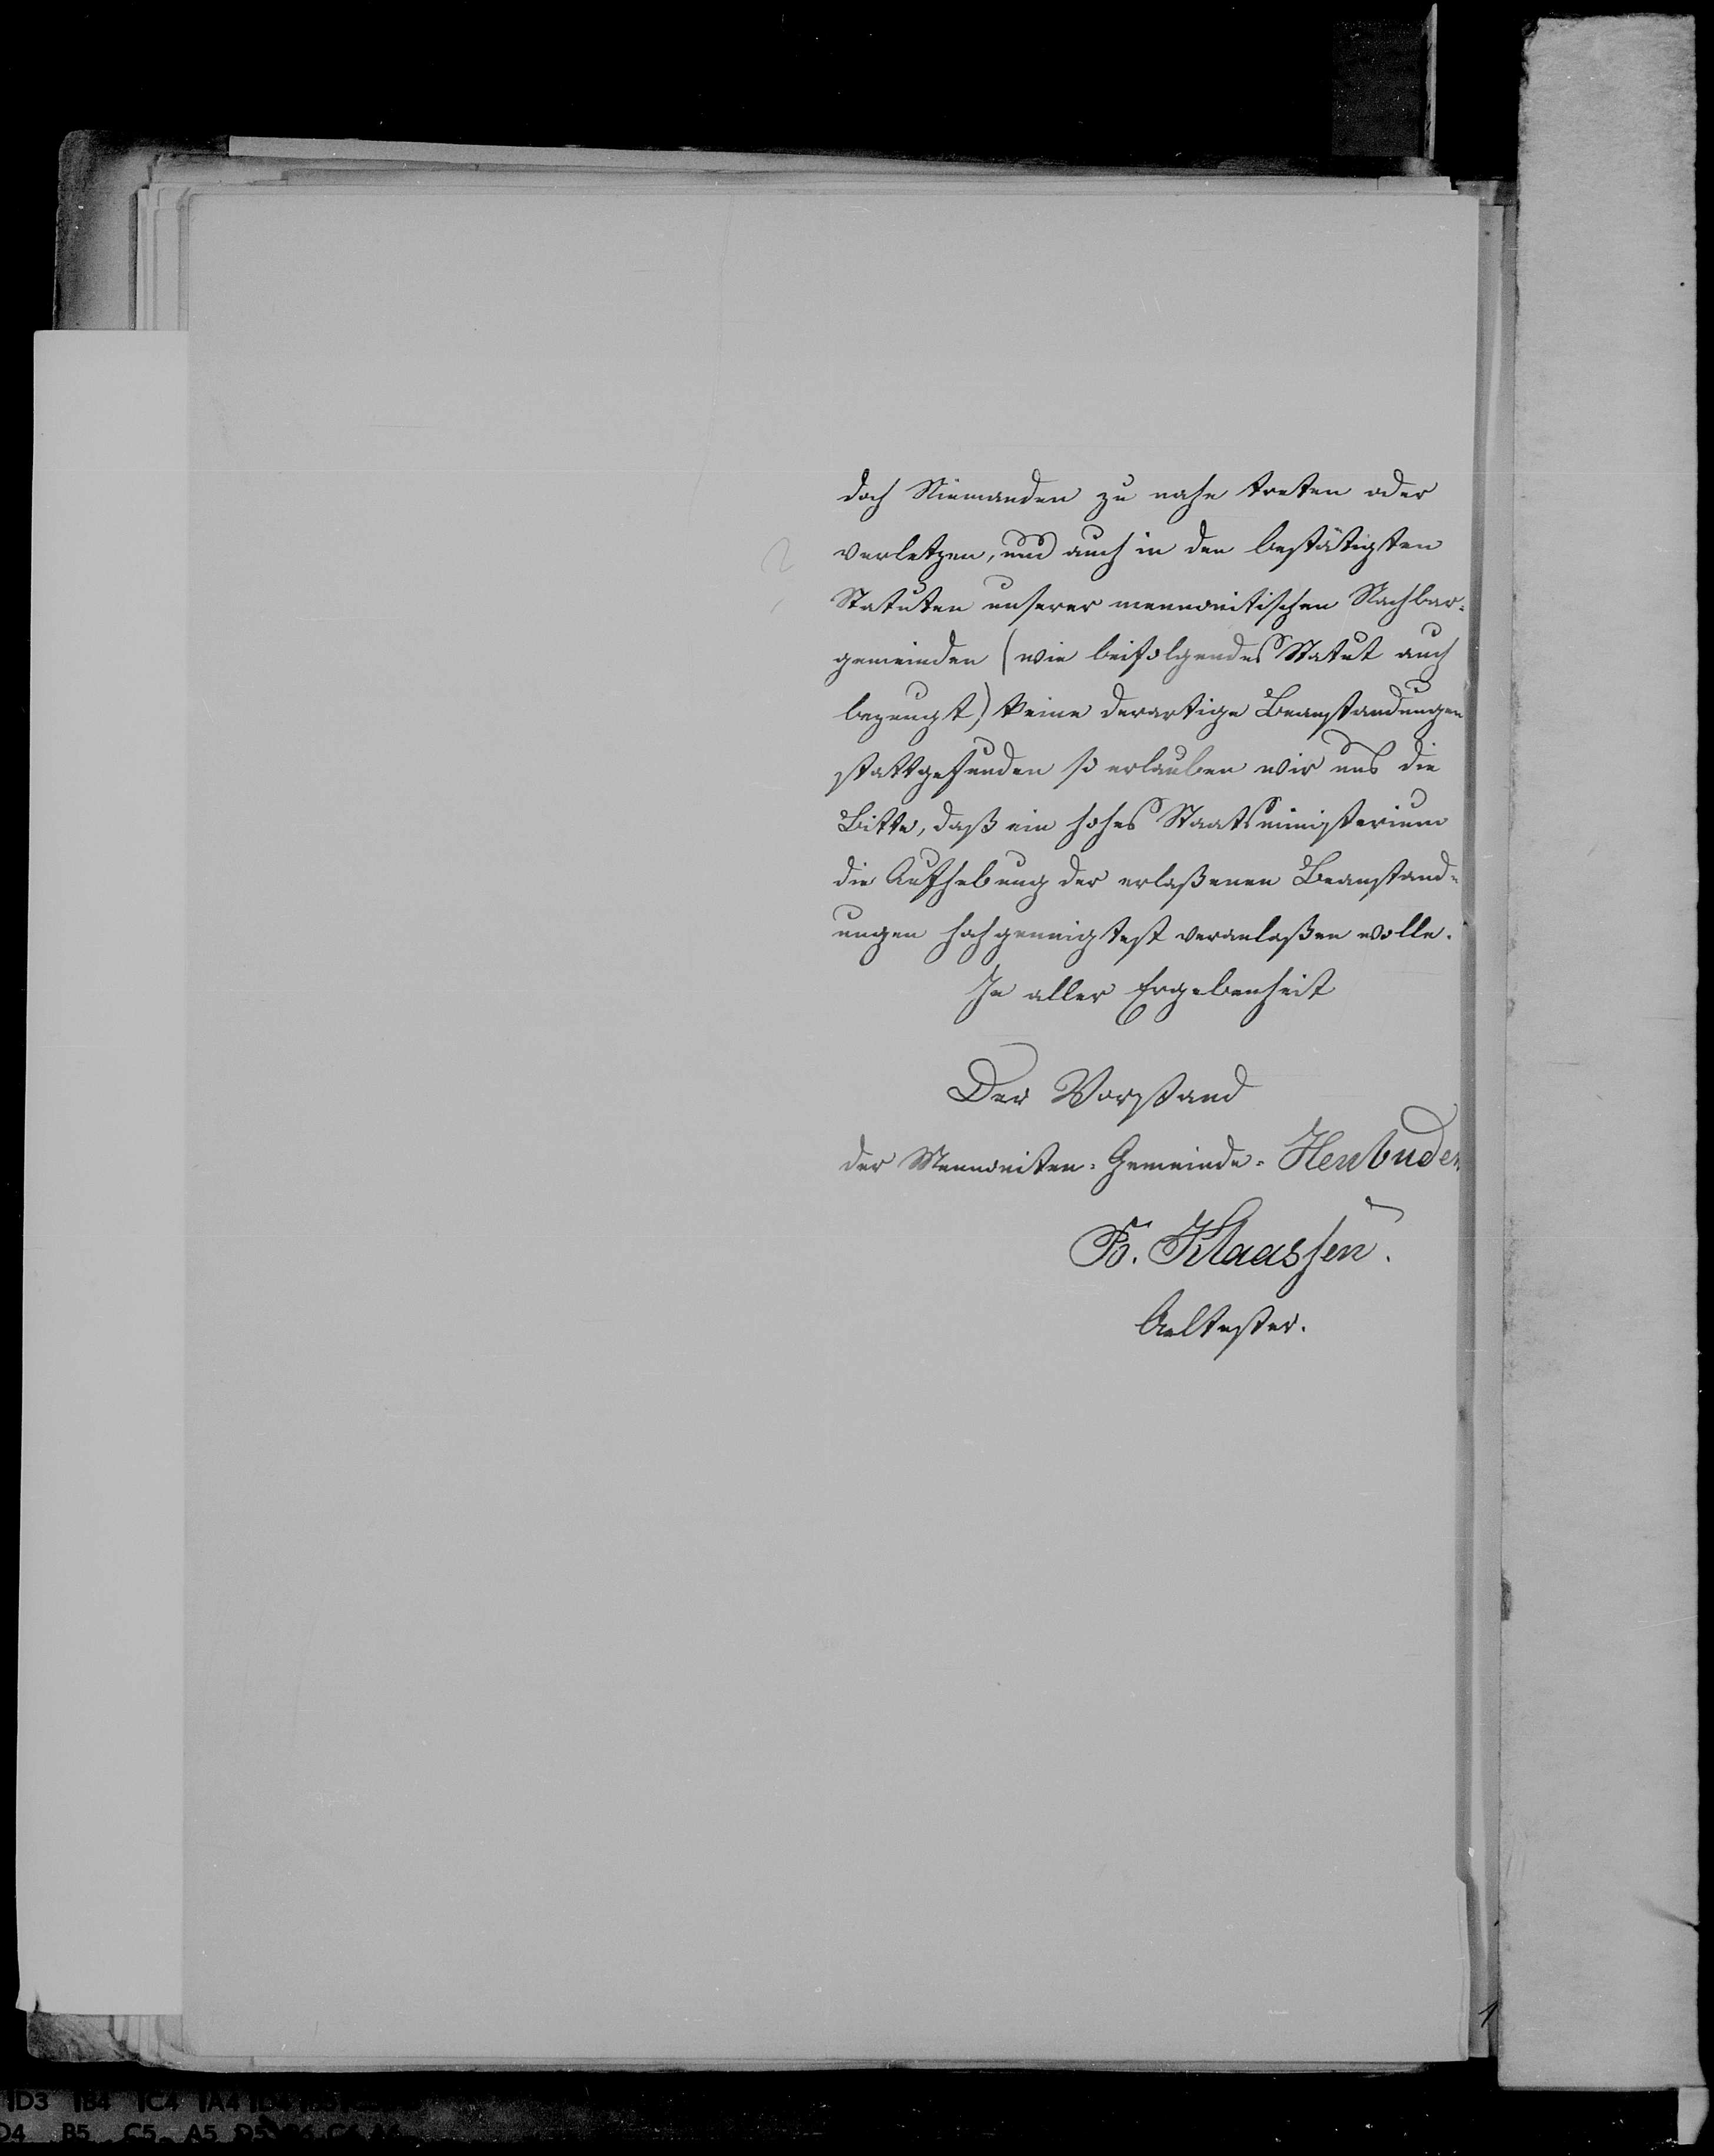 doch Niemanden zu nahe treten oder
verletzen, und auch in den bestätigten
Statuten unserer mennonitischen Nachbar-
gemeinden (wie beifolgendes Statut auch
bezeugt) keine derartige Beanstandungen
stattgefunden so erlauben wir uns die
Bitte, daß ein hohes Staatsministerium
die Aufhebung der erlaßenen Beanstand-
ungen hochgeneigtest veranlaßen wolle.
In aller Ergebenheit
Der Vorstand
der Mennoniten-Gemeinde-Heubuden
B. Klaassen.
Aeltester.
1
D3 B4 C4 A4
D4 B5 C5 A5 D5